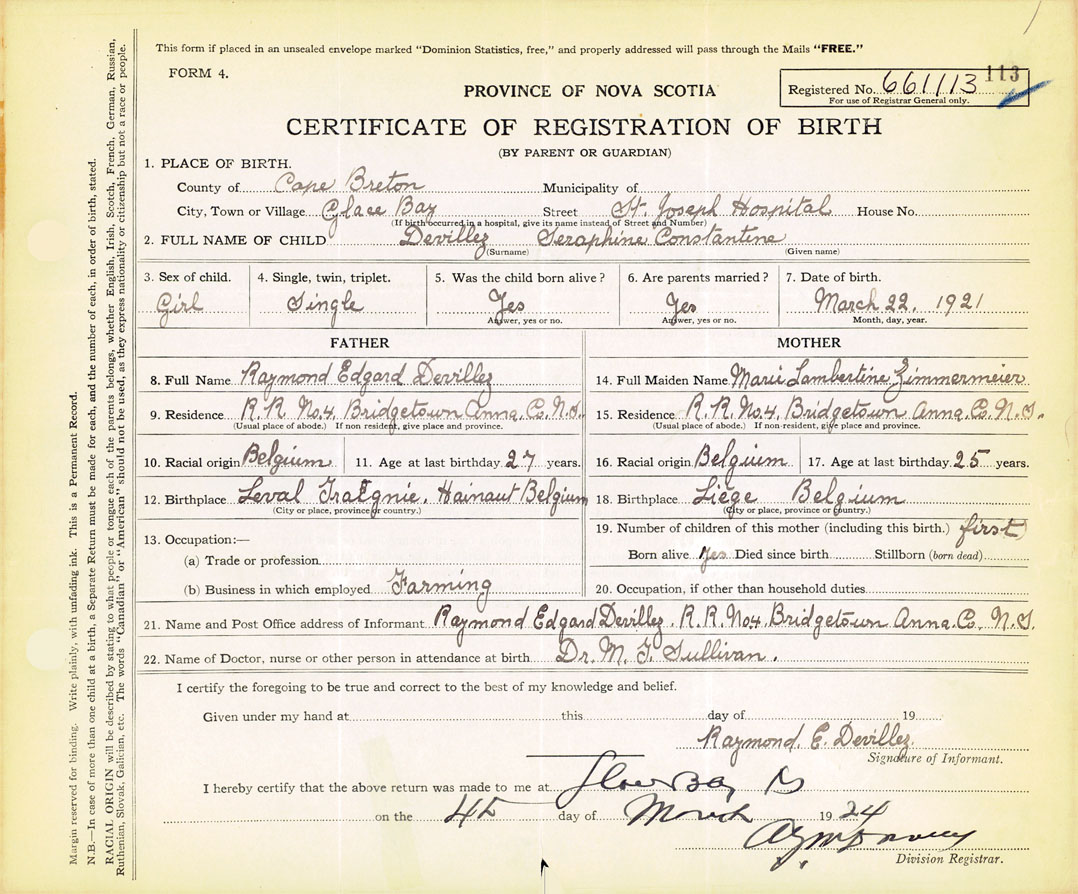 This form if placed in an unsealed envelope marked "Dominion Statistics, free," and properly addressed will pass through the Mails "FREE."
FORM 4.
113
PROVINCE OF NOVA SCOTIA
Registered No. 661113
For use of Registrar General only.
CERTIFICATE OF REGISTRATION OF BIRTH
(BY PARENT OR GUARDIAN)
1. PLACE OF BIRTH.
County of Cape Breton Municipality of
City, Town or Village Glace Bay Street St. Joseph Hospital House No.
(If birth occurred in a hospital, give its name instead of Street and Number)
2. FULL NAME OF CHILD Devillez Seraphine Constantine
(Surname) (Given name)
3. Sex of child. 4. Single, twin, triplet. 5. Was the child born alive? 6. Are parents married? 7. Date of birth.
Girl Single Yes Yes March 22, 1921
Answer, yes or no. Answer, yes or no. Month, day, year.
FATHER
8. Full Name Raymond Edgard Devillez
9. Residence R.R. No. 4, Bridgetown Anna. Co. N.S.
(Usual place of abode.) If non resident, give place and province.
10. Racial origin Belgium 11. Age at last birthday 27 years.
12. Birthplace Leval Traegnie, Hainaut Belgium
(City or place, province or country.)
13. Occupation:—
(a) Trade or profession
(b) Business in which employed Farming
MOTHER
14. Full Maiden Name Marie Lambertine Zimmermeier
15. Residence R.R. No. 4, Bridgetown Anna. Co. N.S.
(Usual place of abode.) If non-resident, give place and province.
16. Racial origin Belgium 17. Age at last birthday 25 years.
18. Birthplace Liége Belgium
(City or place, province or country.)
19. Number of children of this mother (including this birth.) first
Born alive Yes Died since birth Stillborn (born dead)
20. Occupation, if other than household duties
21. Name and Post Office address of Informant Raymond Edgard Devillez, R.R. No4, Bridgetown Anna. Co. N.S.
22. Name of Doctor, nurse or other person in attendance at birth Dr. M. T. Sullivan.
I certify the foregoing to be true and correct to the best of my knowledge and belief.
Given under my hand at this day of 19
Raymond. E. Devillez.
Signature of Informant.
I hereby certify that the above return was made to me at Glace Bay
on the day of March 1924
Division Registrar.
Margin reserved for binding. Write plainly, with unfading ink. This is a Permanent Record.
N.B.—In case of more than one child at a birth, a Separate Return must be made for each, and the number of each, in order of birth, stated.
RACIAL ORIGIN will be described by stating to what people or tongue each of the parents belongs, whether English, Irish, Scotch, French, German, Russian,
Ruthenian, Slovak, Galician, etc. The words "Canadian" or "American" should not be used, as they express nationality or citizenship but not a race or people.